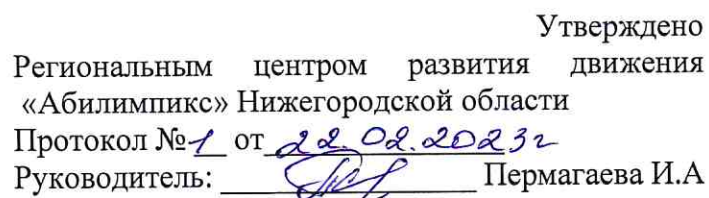 Утверждено
Региональным центром развития движения
«Абилимпикс» Нижегородской области
Протокол №1 от 22.02.2023г
Руководитель: Пермагаева И.А